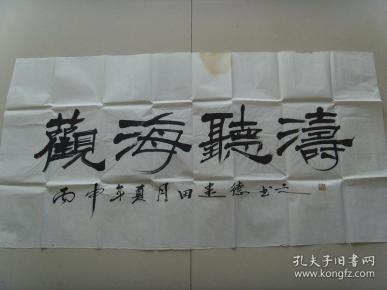 觀海聽濤
丙申年夏月田建德书之
孔夫子旧书网
www.kongfz.com